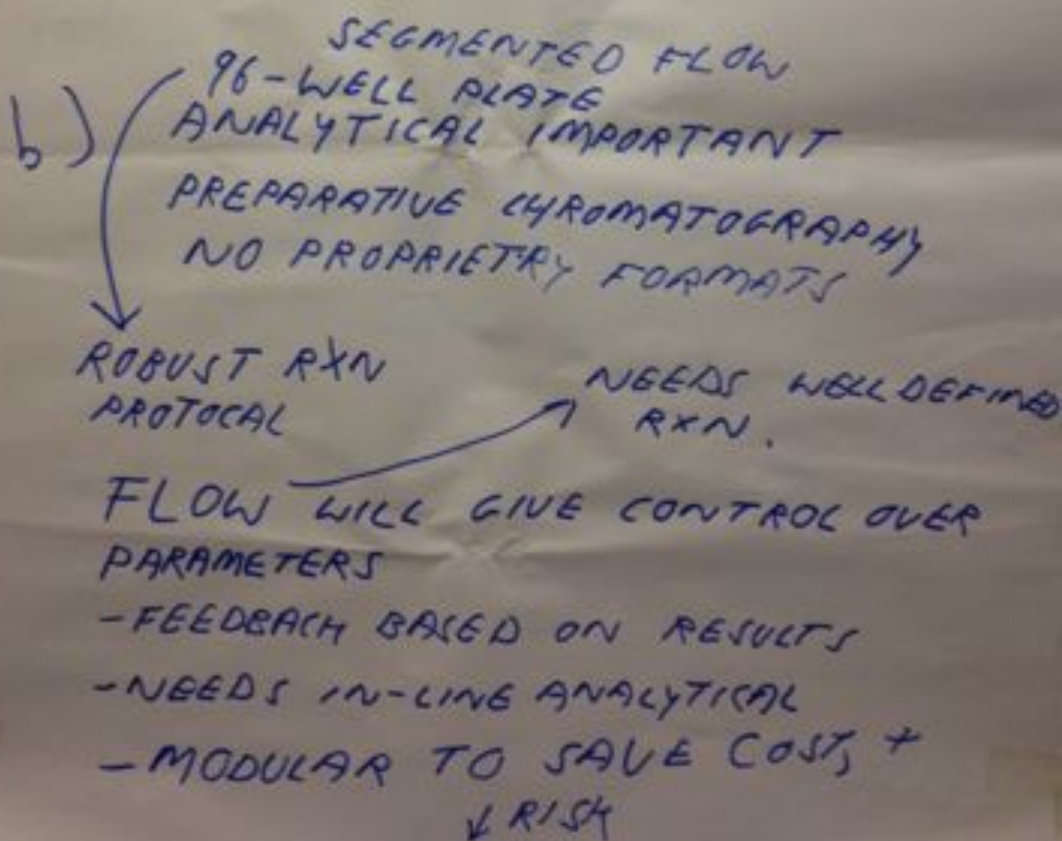 SEGMENTED FLOW
b) 96-WELL PLATE
ANALYTICAL IMPORTANT
PREPARATIVE CHROMATOGRAPHY
NO PROPRIETRY FORMATS
ROBUST RXN
PROTOCAL
NEEDS WELL DEFINED
RXN.
FLOW WILL GIVE CONTROL OVER
PARAMETERS
-FEEDBACK BASED ON RESULTS
-NEEDS IN-LINE ANALYTICAL
-MODULAR TO SAVE COST, +
↓ RISK